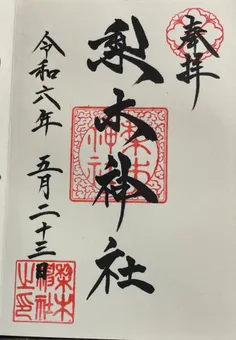 奉拝
梨木神社
令和六年 五月二十三日
梨木神社
梨木神社之印